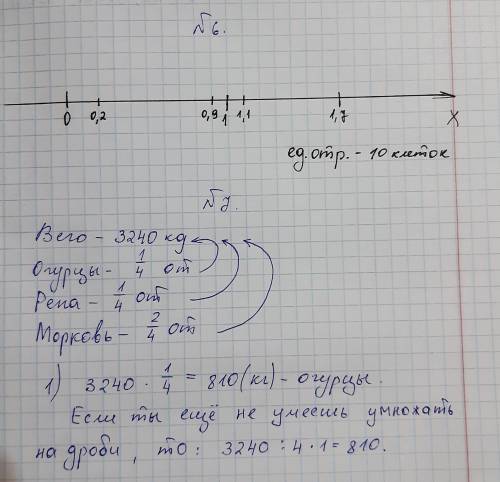 №6.
0 0,2 0,9 1 1,1 1,7 X
ед.отр. - 10 клеток
№7.
Вего - 3240 кд
Огурцы - 1/4 от
Репа - 1/4 от
Морковь - 2/4 от
1) 3240 · 1/4 = 810 (кг) - огурцы.
Если ты ещё не умеешь умножать
на дроби, то: 3240 : 4 · 1 = 810.